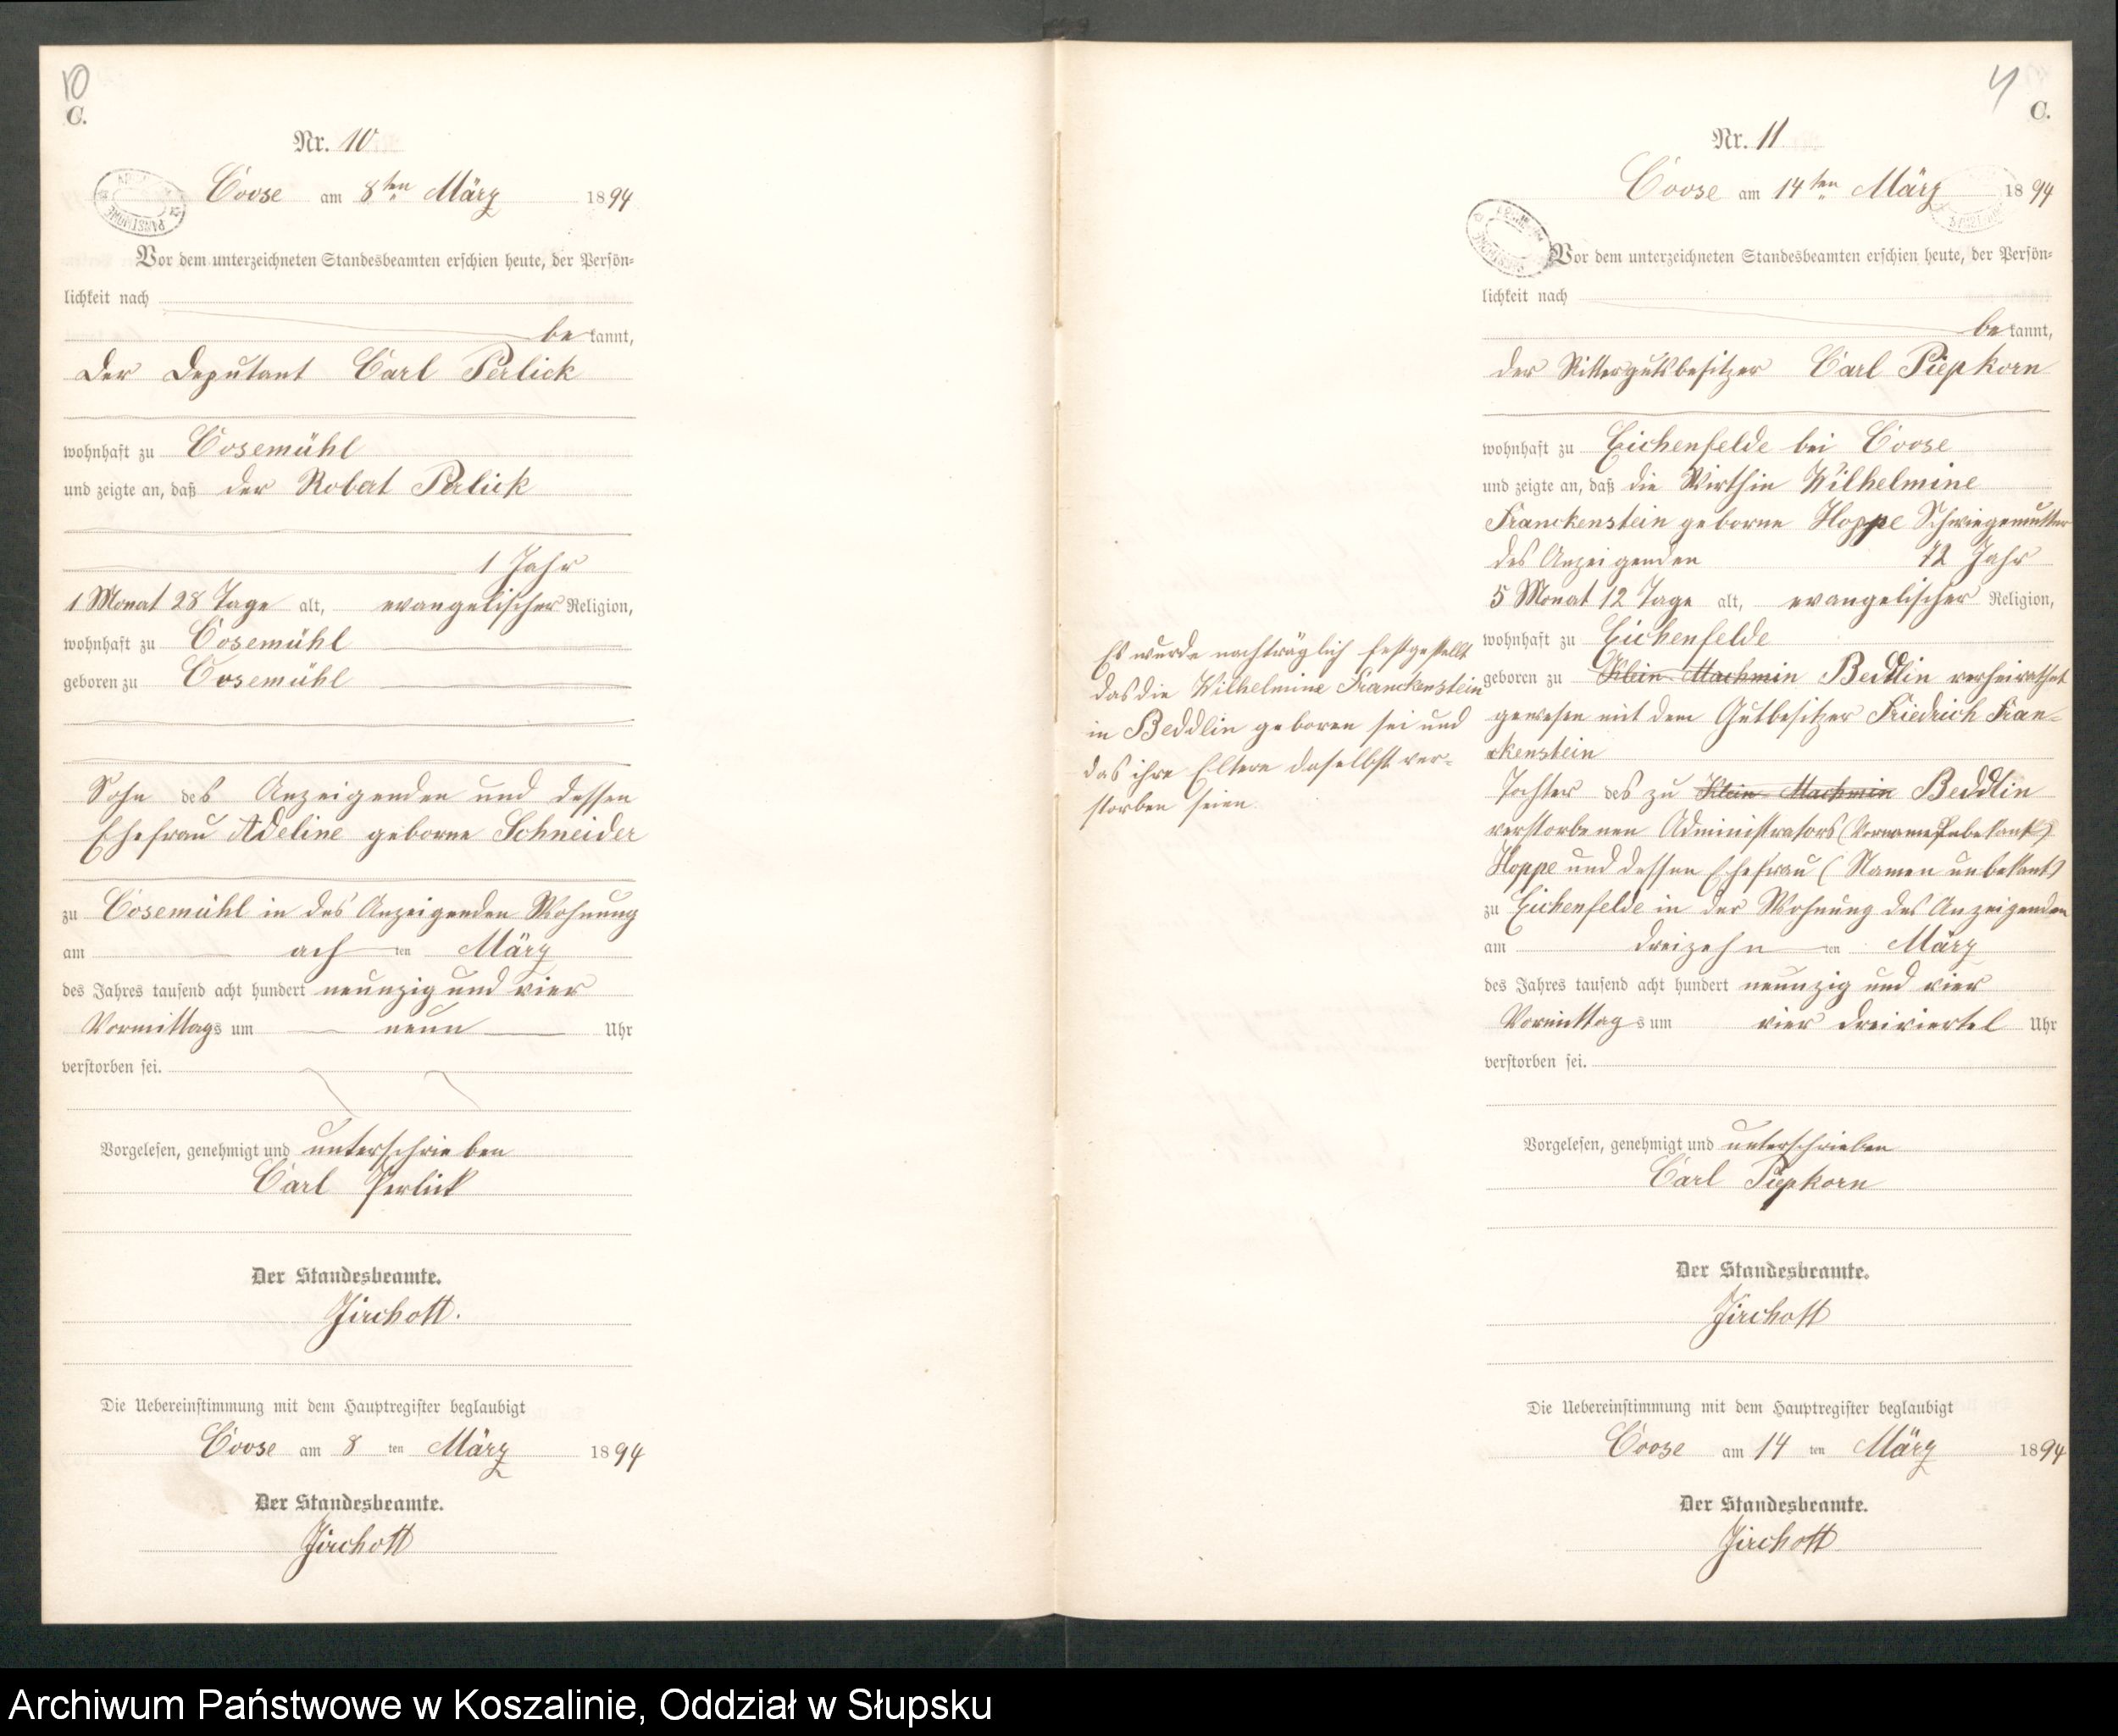 10
C.
Nr. 10
Coose am 8ten März 1894
Vor dem unterzeichneten Standesbeamten erschien heute, der Persön-
lichkeit nach
be kannt,
der Deputant Carl Perlick
wohnhaft zu Cosemühl
und zeigte an, daß der Robert Perlick
1 Jahr
1 Monat 28 Tage alt, evangelischer Religion,
wohnhaft zu Cosemühl
geboren zu Cosemühl
Sohn des Anzeigenden und dessen
Ehefrau Adeline geborne Schneider
zu Cosemühl in des Anzeigenden Wohnung
am ach ten März
des Jahres tausend acht hundert neunzig und vier
Vormittags um neun Uhr
verstorben sei.
Vorgelesen, genehmigt und unterschrieben
Carl Perlick
Der Standesbeamte.
Zirchott.
Die Uebereinstimmung mit dem Hauptregister beglaubigt
Coose am 8 ten März 1894
Der Standesbeamte.
Zirchott
Es wurde nachträglich festgestellt
das die Wilhelmine Franckenstein
in Beddlin geboren sei und
das ihre Eltern daselbst ver-
storben seien
C.
Nr. 11
Coose am 14ten März 1894
Vor dem unterzeichneten Standesbeamten erschien heute, der Persön-
lichkeit nach
be kannt,
der Rittergutsbesitzer Carl Piepkorn
wohnhaft zu Eichenfelde bei Coose
und zeigte an, daß die Wirthin Wilhelmine
Franckenstein geborne Hoppe Schwiegemutter
des Anzeigenden 72 Jahr
5 Monat 12 Tage alt, evangelischer Religion,
wohnhaft zu Eichenfelde
geboren zu Klein Machmin Beddlin verheirathet
gewesen mit dem Gutbesitzer Friedrich Fran-
ckenstein
Tochter des zu Klein Machmin Beddlin
verstorbenen Administrators (Vorname Unbekant)
Hoppe und dessen Ehefrau (Namen unbekant)
zu Eichenfelde in der Wohnung des Anzeigenden
am dreizehn ten März
des Jahres tausend acht hundert neunzig und vier
Vormittags um vier dreiviertel Uhr
verstorben sei.
Vorgelesen, genehmigt und unterschrieben
Carl Piepkorn
Der Standesbeamte.
Zirchott
Die Uebereinstimmung mit dem Hauptregister beglaubigt
Coose am 14 ten März 1894
Der Standesbeamte.
Zirchott
Archiwum Państwowe w Koszalinie, Oddział w Słupsku